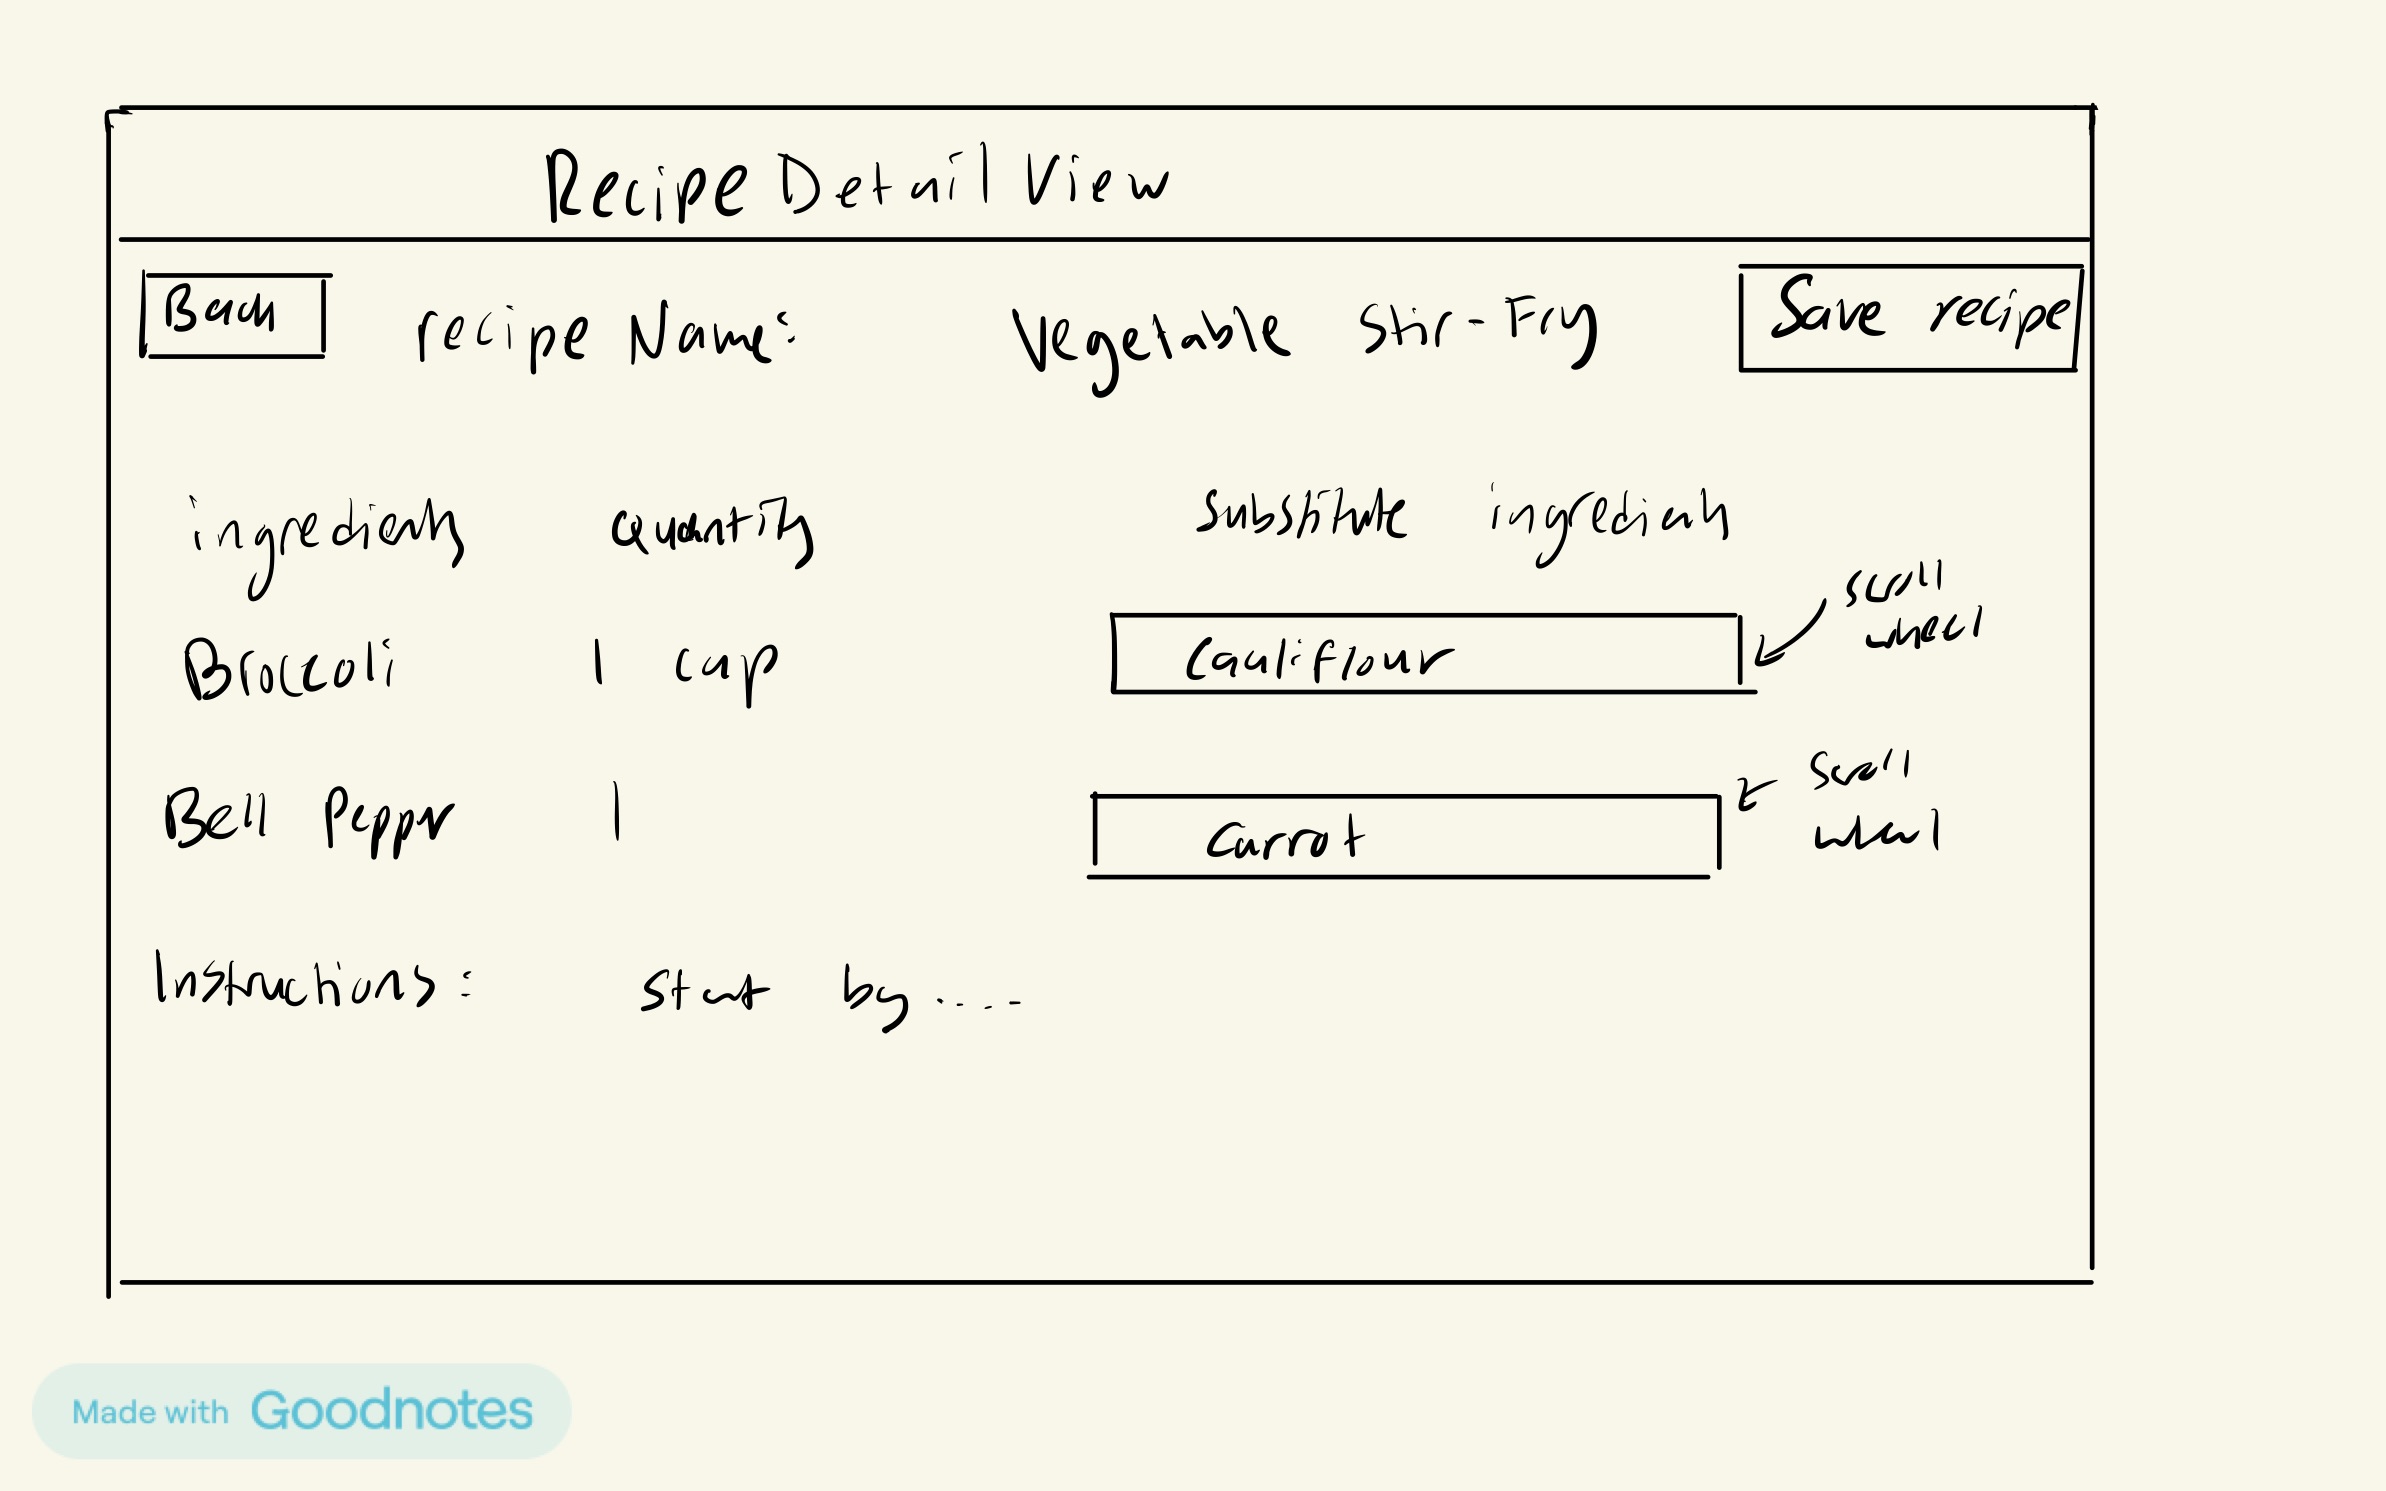 Recipe Detail View
Back recipe Name: Vegetable Stir-Fry Save recipe
ingredients quantity substitute ingredients
scroll
wheel
Broccoli 1 cup Cauliflour
Bell Pepper 1 Carrot
scroll
wheel
Instructions: start by ....
Made with Goodnotes